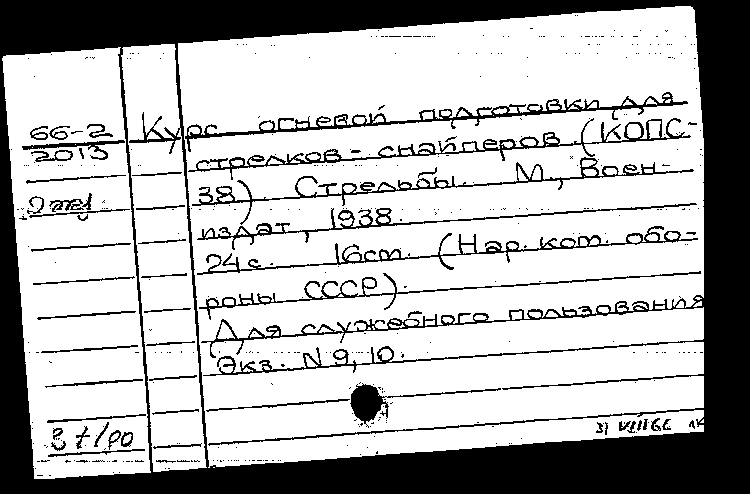 66-2
2013
Курс огневой подготовки для
стрелков-снайперов (КОПС-
38) Стрельбы. М., Воен-
издат, 1938.
24с. 16см. (Нар. ком. обо-
роны СССР).
Для служебного пользования
Экз. N 9, 10.
31 VIII 66